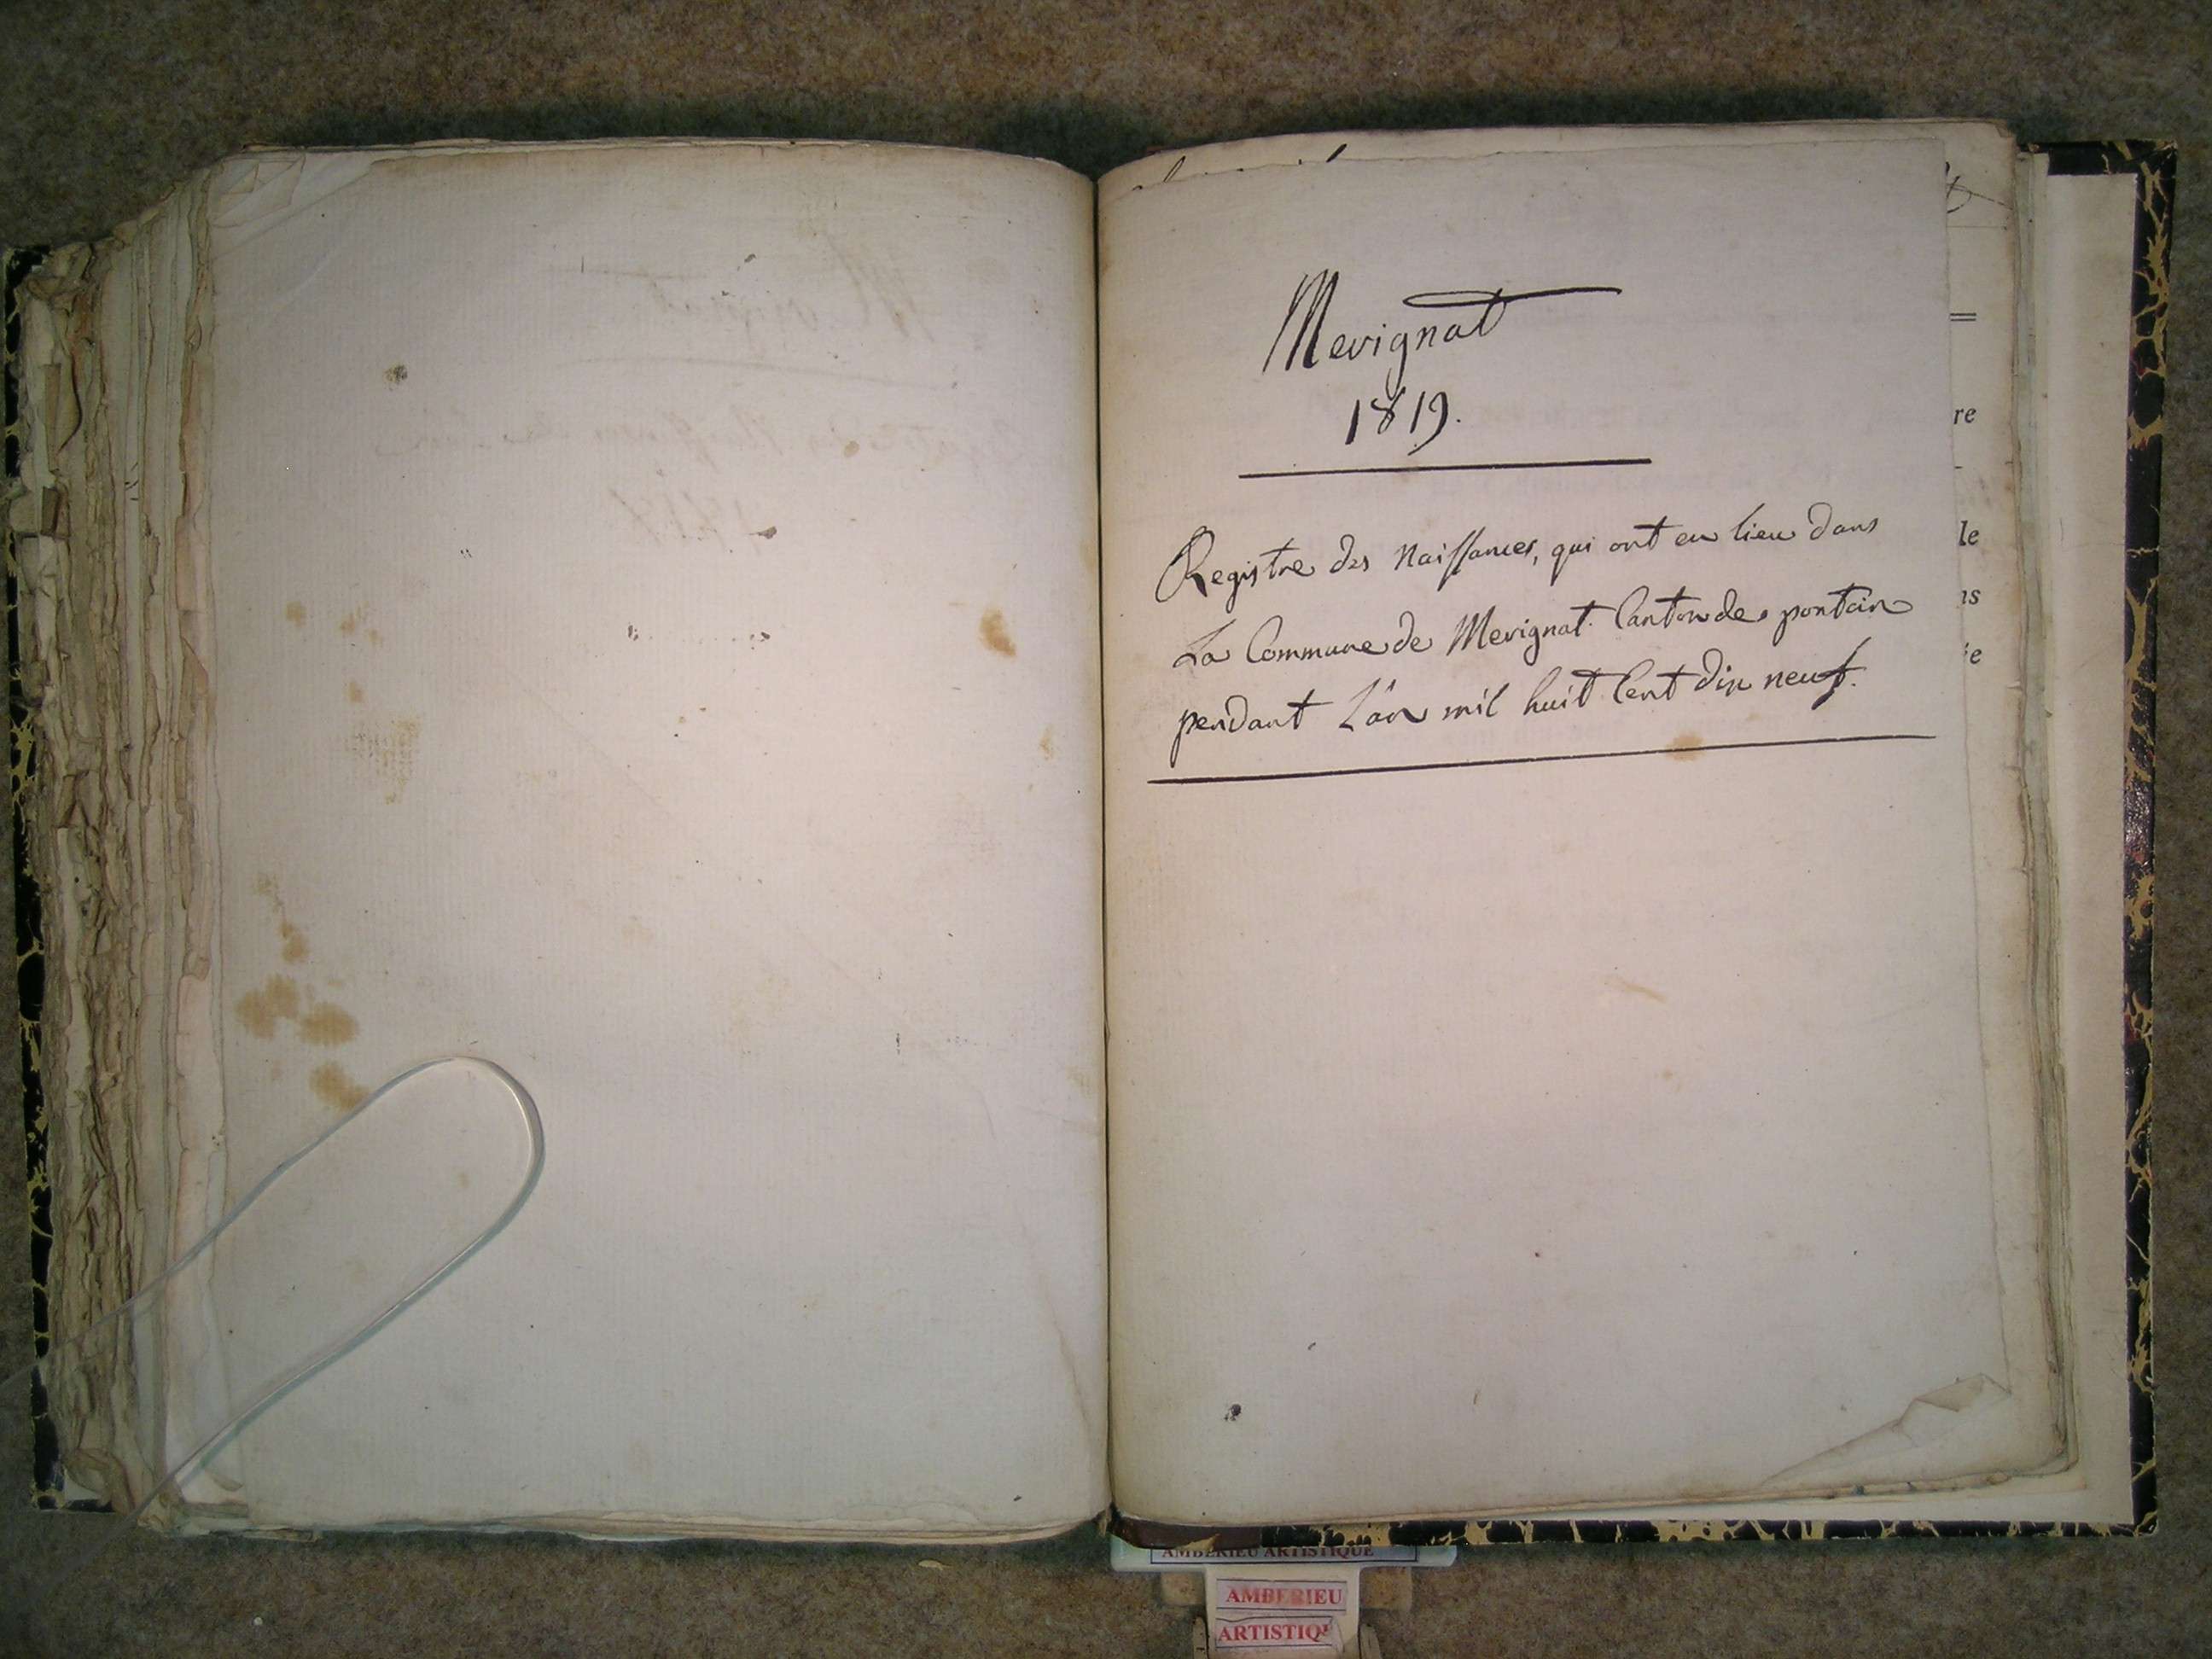 Mevignat
1819.
Registre des Naissances, qui ont eu lieu dans
La Commune de Mevignat. Canton de pontain
pendant L'an mil huit Cent dix neuf.
re
le
ns
AMBERIEU ARTISTIQUE
AMBERIEU
ARTISTIQU